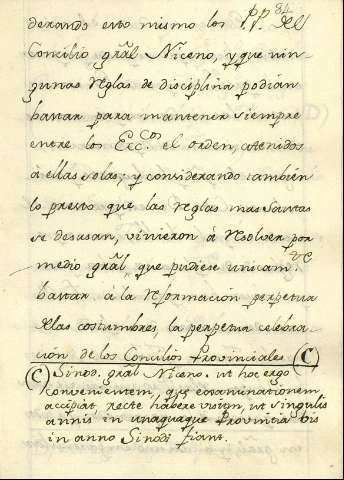 84
derando esto mismo los PP. del
Concilio grãl Niceno, y que nin
gunas reglas de disciplina podian
bastar para mantener siempre
entre los Ecc.cos el orden, atenidos
à ellas solas; y considerando tambien
lo presto que las reglas mas Santas
se desusan, vinieron à resolver por
medio grãl que pudiese unicam.te
bastar à la reformacion perpetua
de las costumbres, la perpetua celebra
cion de los Concilios Provinciales (C)
(C) Sinod. gral Niceno. ut hac ergo
convenientem, que examinationem
accipiat, recte habere visum, ut singulis
annis in unaquaque Provincia bis
in anno Sinodi fiant.